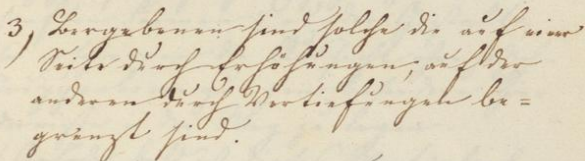 3, Bergebenen sind solche die auf einer
Seite durch Erhöhungen, auf der
anderen durch Vertiefungen be=
grenzt sind.